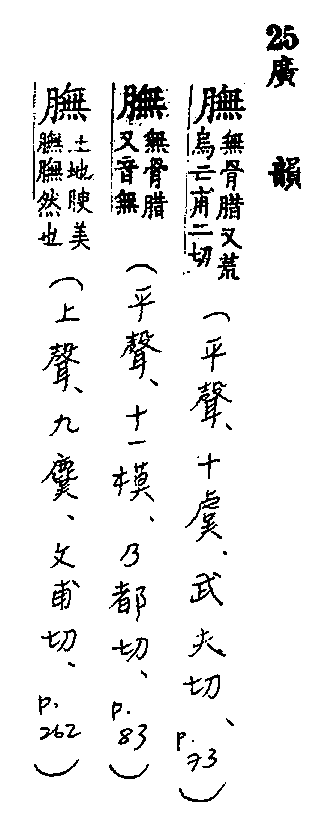 25 廣韻
膴 無骨腊又荒烏亡甫二切（平聲、十虞、武夫切、p.73）
膴 無骨腊又音無（平聲、十一模、乃都切、p.83）
膴 土地腴美膴膴然也（上聲、九麌、文甫切、p.262）